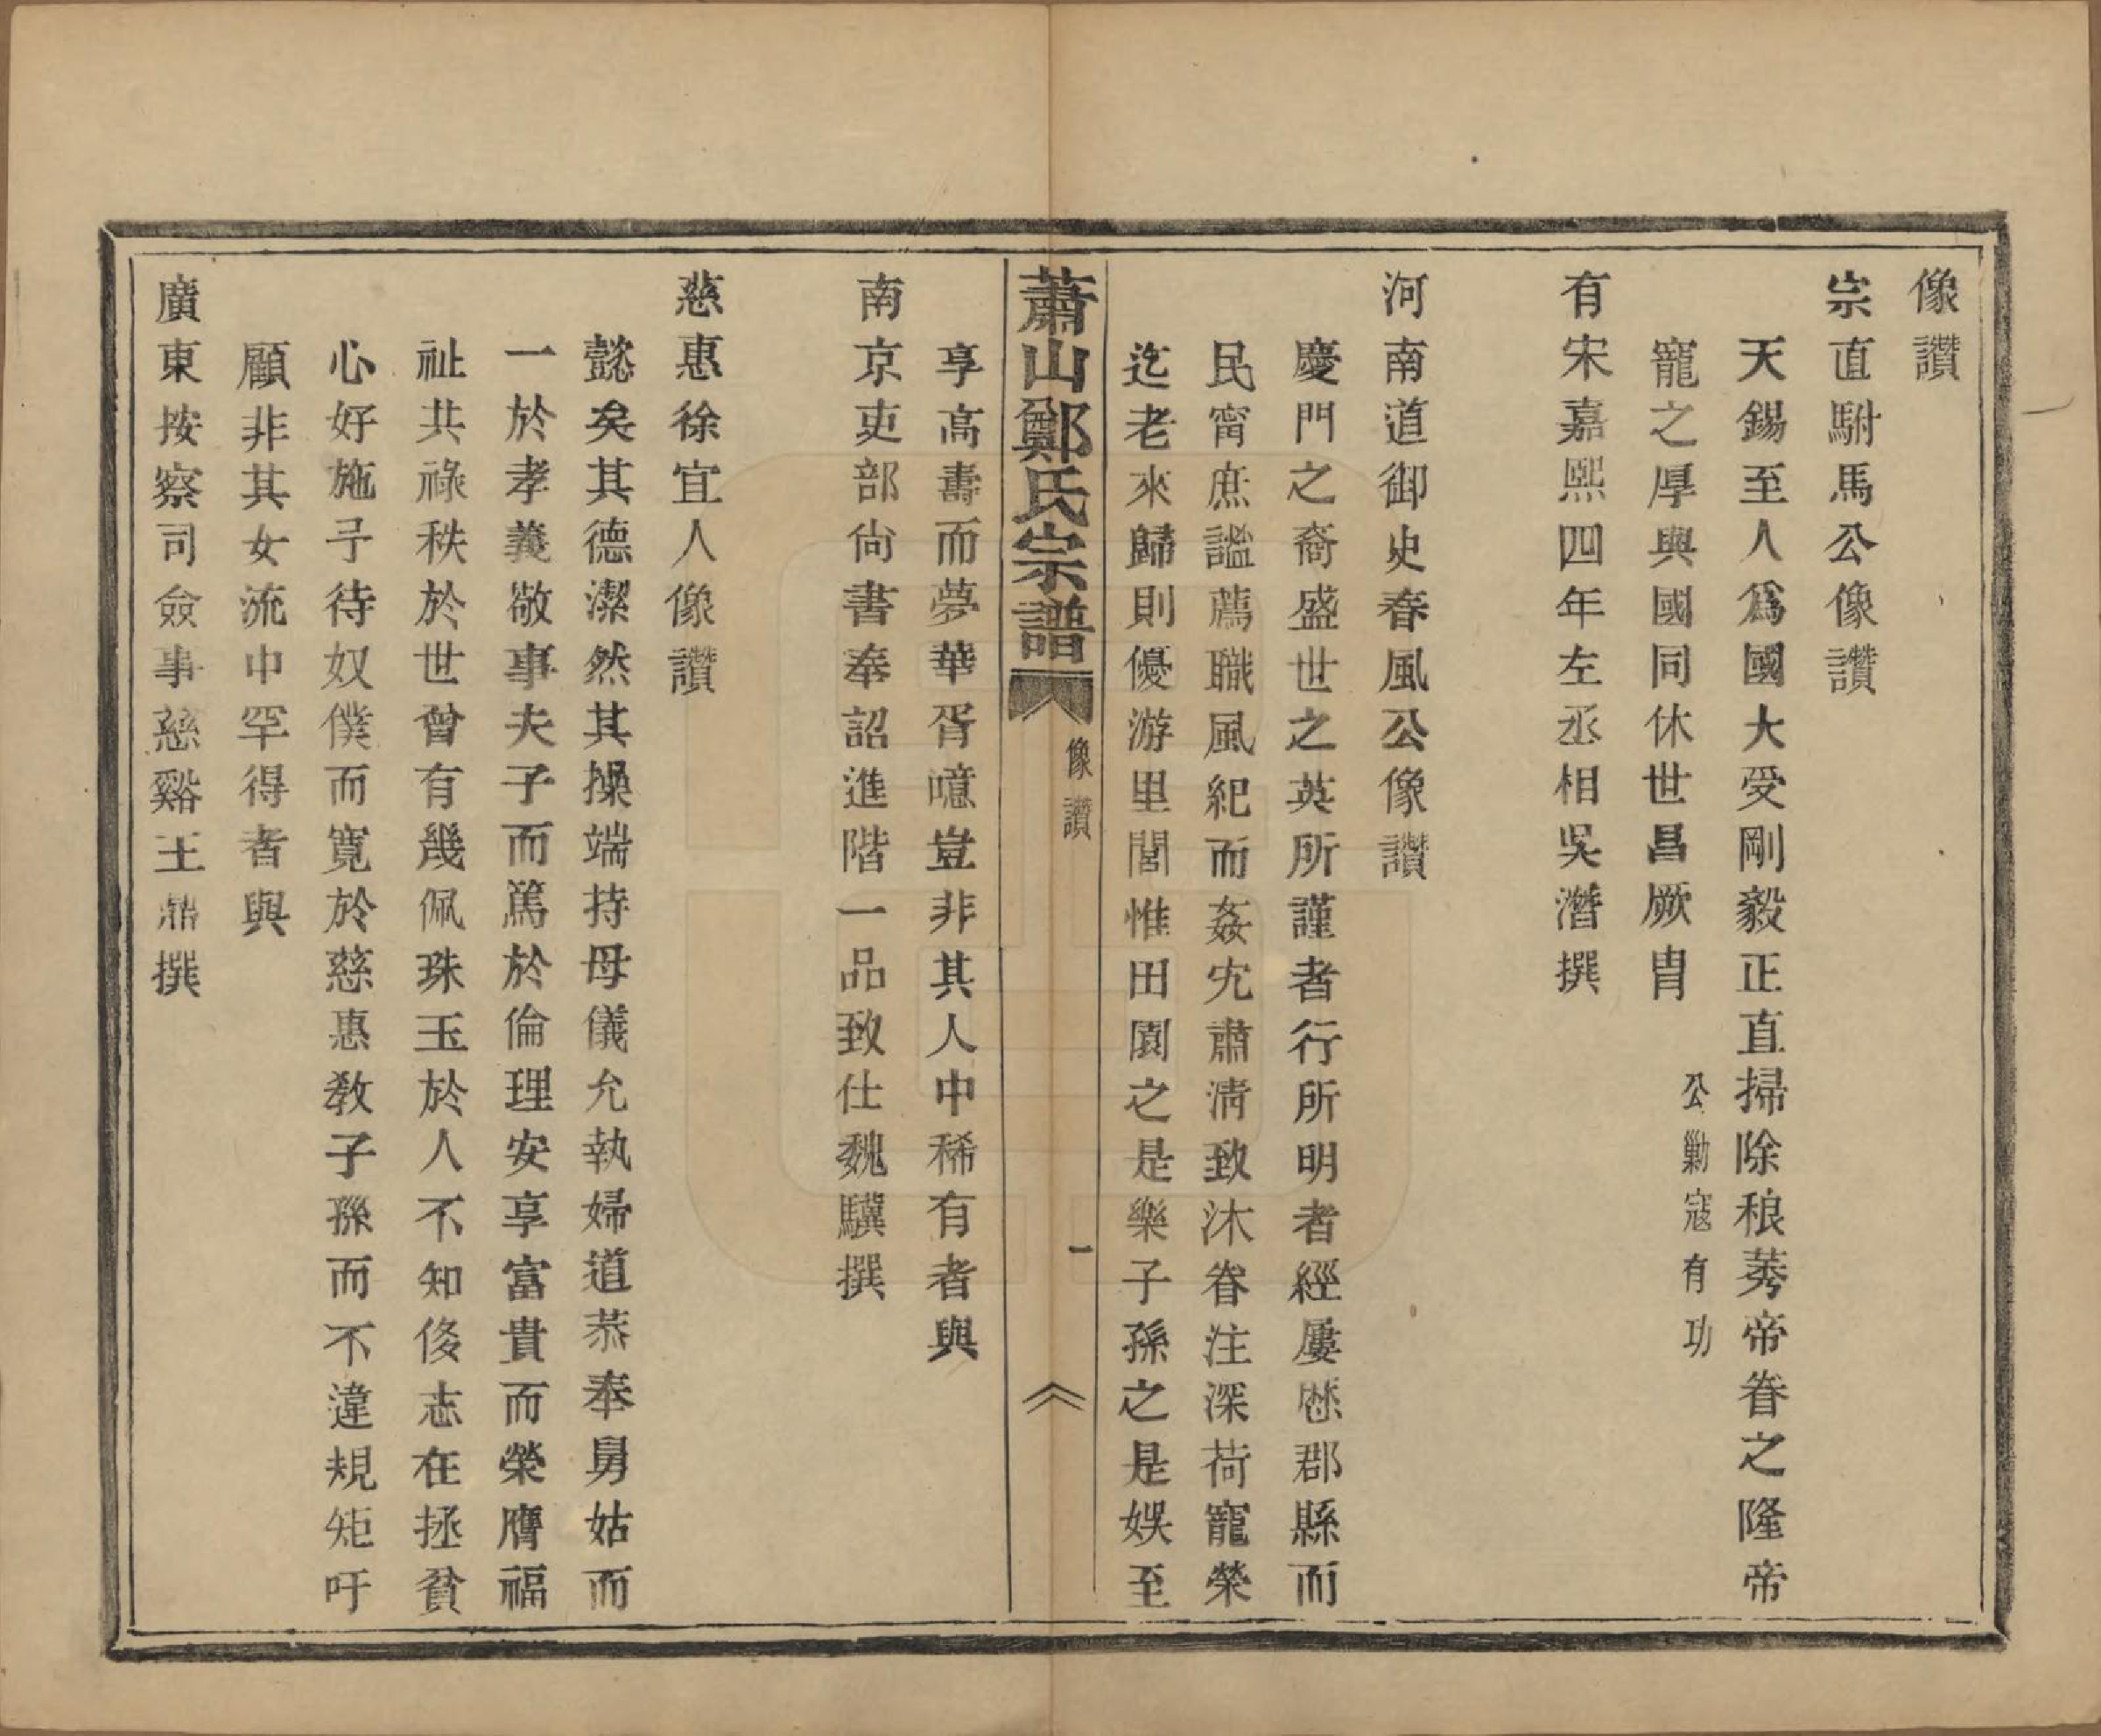 像讚
宗直駙馬公像讚
天錫至人爲國大受剛毅正直掃除稂莠帝眷之隆帝
寵之厚與國同休世昌厥冑
公勦寇有功
有宋嘉熙四年左丞相吳潛撰
河南道御史春風公像讚
慶門之裔盛世之英所謹者行所明者經屢歷郡縣而
民甯庶謐薦職風紀而姦宄肅淸致沐眷注深荷寵榮
迄老來歸則優游里閭惟田園之是樂子孫之是娛至
蕭山鄭氏宗譜
像讚
一
享高壽而夢華胥噫豈非其人中稀有者與
南京吏部尙書奉詔進階一品致仕魏驥撰
慈惠徐宜人像讚
懿矣其德潔然其操端持母儀允執婦道恭奉舅姑而
一於孝義敬事夫子而篤於倫理安享富貴而榮膺福
祉共祿秩於世曾有幾佩珠玉於人不知侈志在拯貧
心好施予待奴僕而寬於慈惠敎子孫而不違規矩吁
顧非其女流中罕得者與
廣東按察司僉事慈谿王鼎撰